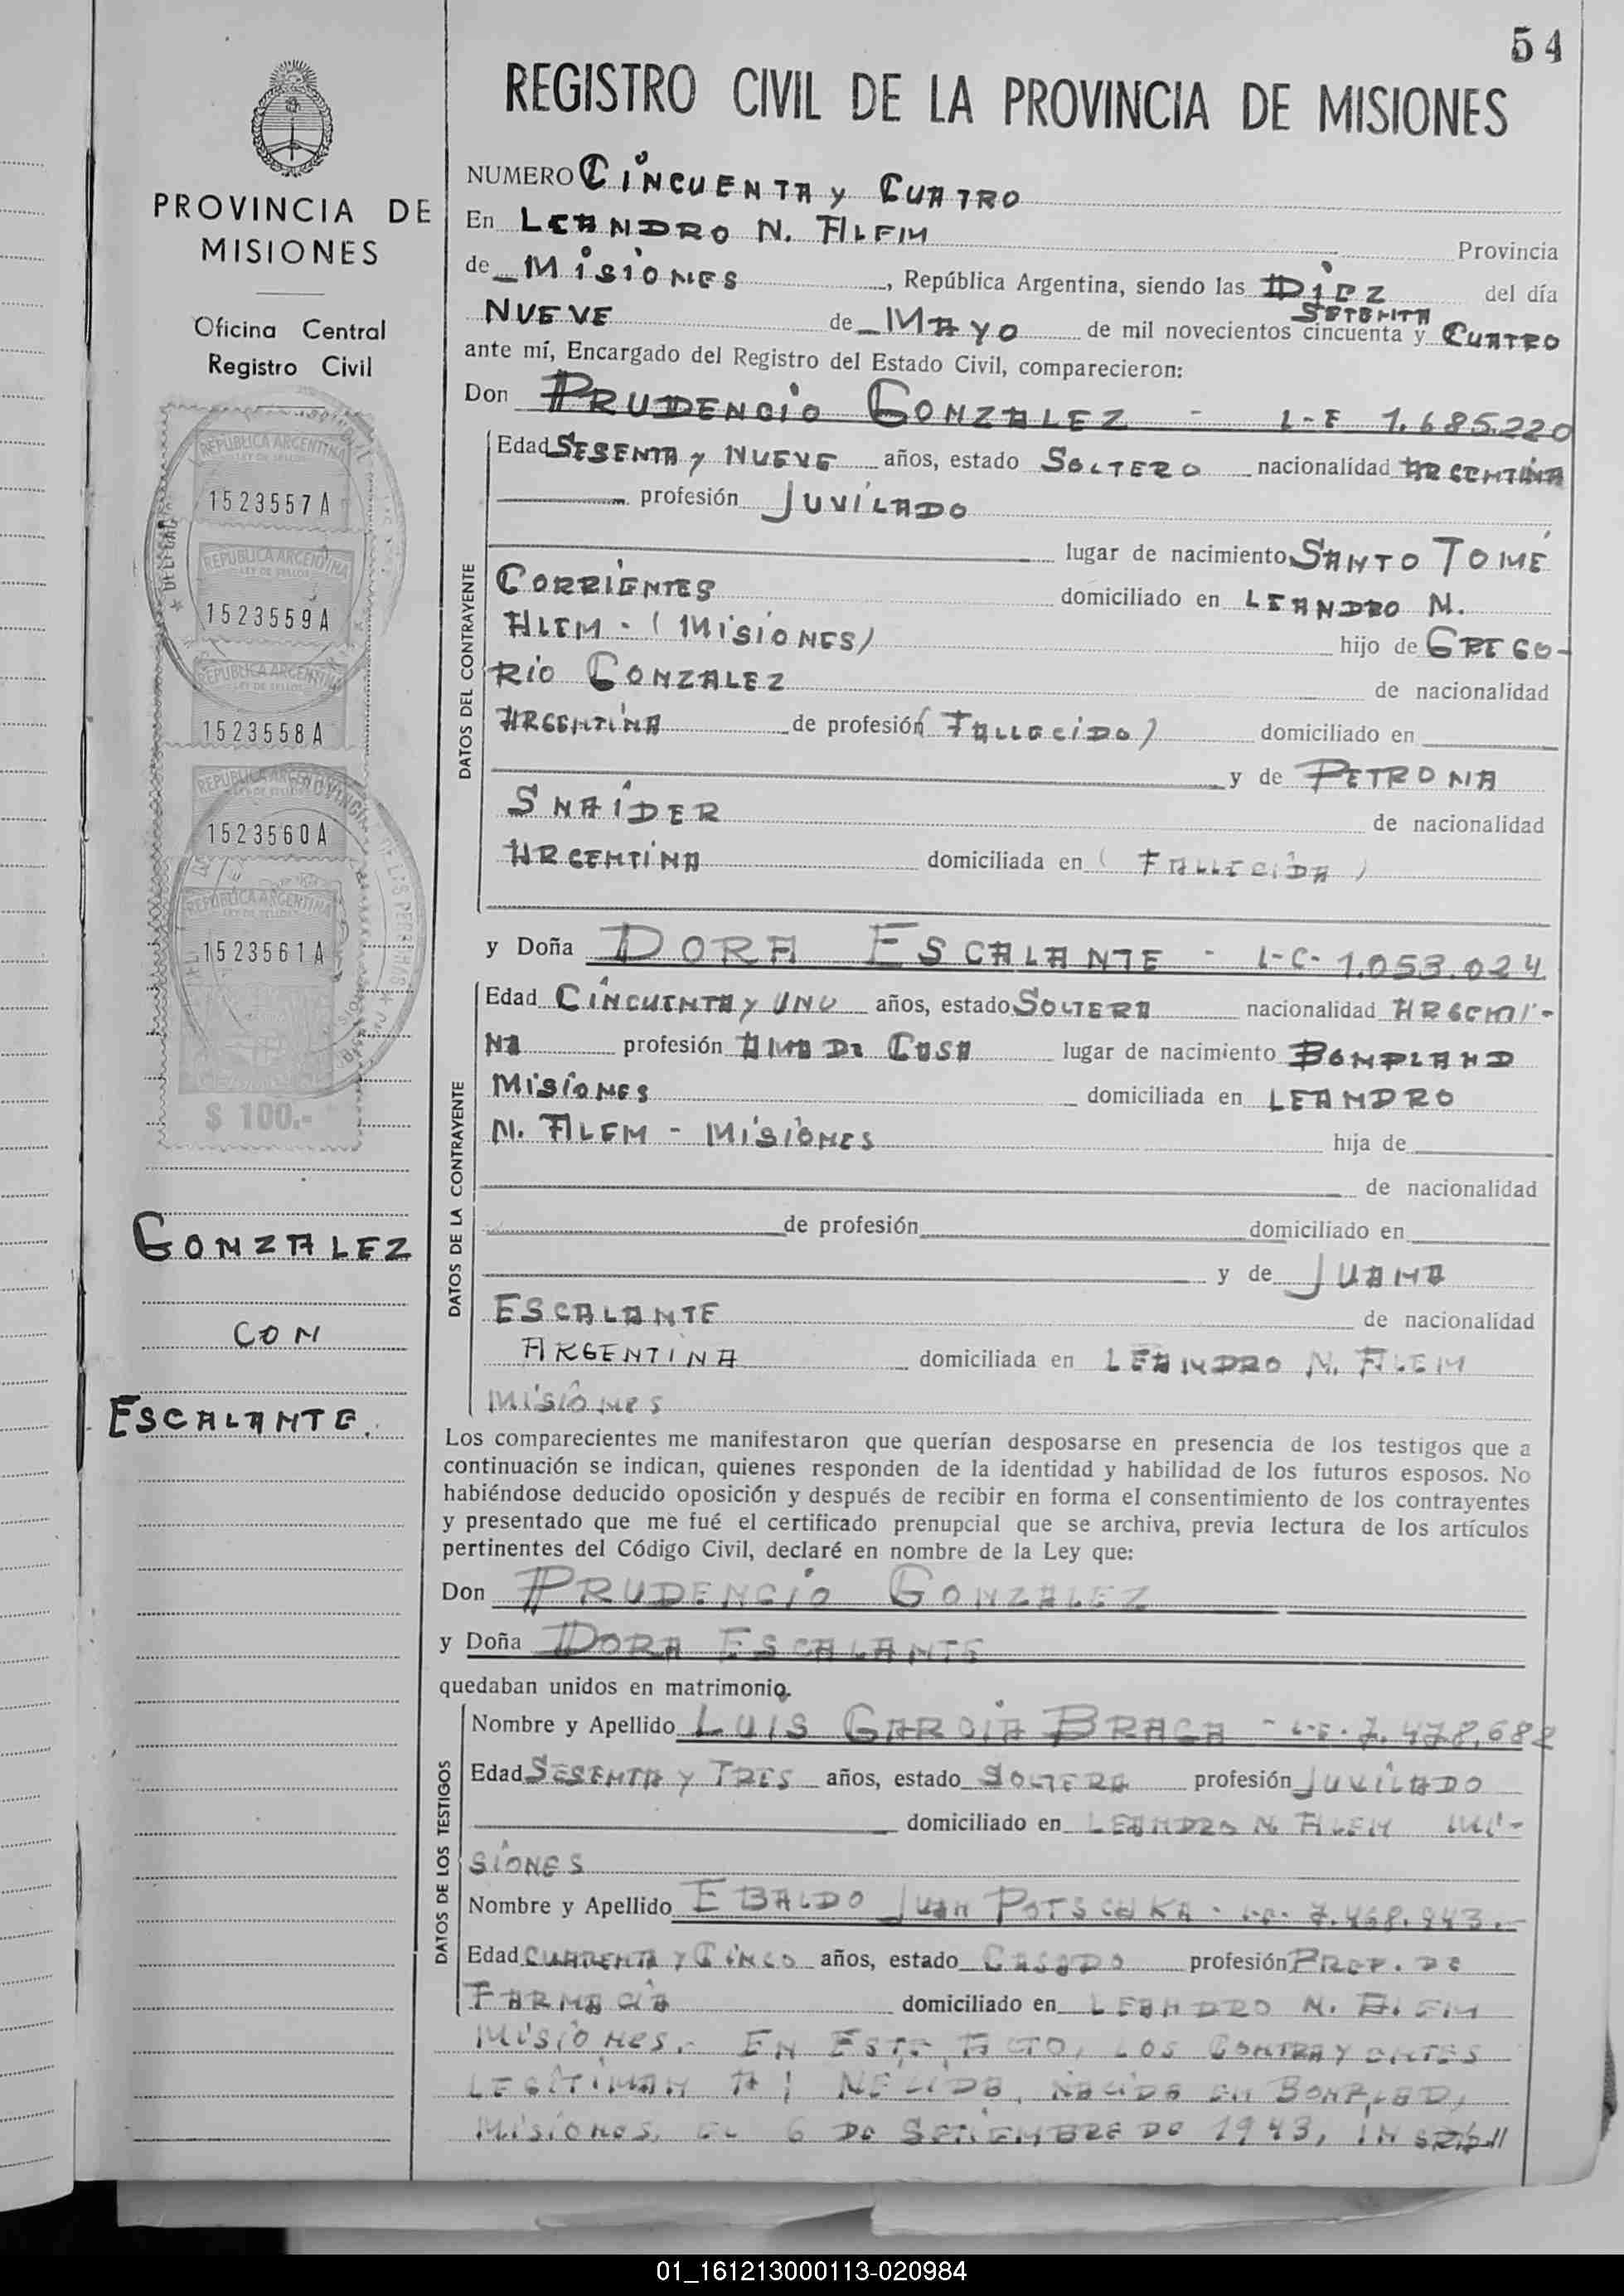 54
REGISTRO CIVIL DE LA PROVINCIA DE MISIONES
PROVINCIA DE
MISIONES
Oficina Central
Registro Civil
REPUBLICA ARGENTINA
LEY DE SELLOS
1523557A
REPUBLICA ARGENTINA
LEY DE SELLOS
1523559A
REPUBLICA ARGENTINA
LEY DE SELLOS
1523558A
REPUBLICA ARGENTINA
1523560A
REPUBLICA ARGENTINA
LEY DE SELLOS
1523561A
$ 100.-
GONZALEZ
CON
ESCALANTE.
NUMERO CINCUENTA y CUATRO
En LEANDRO N. ALEM Provincia
de MISIONES, República Argentina, siendo las DIEZ del día
NUEVE de MAYO de mil novecientos cincuenta y CUATRO
SETENTA
ante mí, Encargado del Registro del Estado Civil, comparecieron:
Don PRUDENCIO GONZALEZ - L-E 1.685.220
DATOS DEL CONTRAYENTE
Edad SESENTA y NUEVE años, estado SOLTERO nacionalidad ARGENTINA
profesión JUVILADO
lugar de nacimiento SANTO TOMÉ
CORRIENTES domiciliado en LEANDRO N.
ALEM - (MISIONES) hijo de GREGO-
RIO GONZALEZ de nacionalidad
ARGENTINA de profesión (FALLECIDO) domiciliado en
y de PETRONA
SNAIDER de nacionalidad
ARGENTINA domiciliada en (FALLECIDA)
y Doña DORA ESCALANTE - L-C- 1.053.024
DATOS DE LA CONTRAYENTE
Edad CINCUENTA y UNO años, estado SOLTERA nacionalidad ARGENTI-
NA profesión AMA DE CASA lugar de nacimiento BOMPLAND
MISIONES domiciliada en LEANDRO
N. ALEM - MISIONES hija de
de nacionalidad
de profesión domiciliado en
y de JUANA
ESCALANTE de nacionalidad
ARGENTINA domiciliada en LEANDRO N. ALEM
MISIONES
Los comparecientes me manifestaron que querían desposarse en presencia de los testigos que a
continuación se indican, quienes responden de la identidad y habilidad de los futuros esposos. No
habiéndose deducido oposición y después de recibir en forma el consentimiento de los contrayentes
y presentado que me fué el certificado prenupcial que se archiva, previa lectura de los artículos
pertinentes del Código Civil, declaré en nombre de la Ley que:
Don PRUDENCIO GONZALEZ
y Doña DORA ESCALANTE
quedaban unidos en matrimonio.
DATOS DE LOS TESTIGOS
Nombre y Apellido LUIS GARCIA BRAGA - L-E- 7.478.682
Edad SESENTA y TRES años, estado SOLTERA profesión JUVILADO
domiciliado en LEANDRO N. ALEM MI-
SIONES
Nombre y Apellido EBALDO JUAN POTSCHKA - 7.468.943.-
Edad CUARENTA y CINCO años, estado CASADO profesión PROP. DE
FARMACIA domiciliado en LEANDRO N. ALEM
MISIONES.- EN ESTE ACTO, LOS CONTRAYENTES
LEGITIMAN A: NELIDA, NACIDA EN BONPLAD,
MISIONES, EL 6 DE SETIEMBRE DE 1943,
01_161213000113-020984